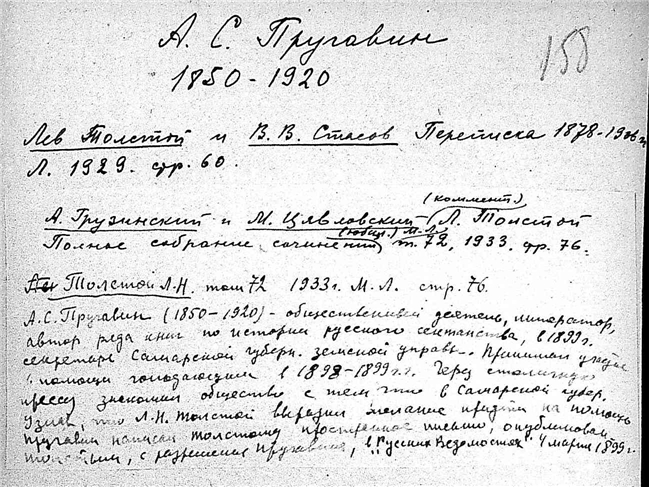 А. С. Пругавин
158
1850-1920
Лев Толстой и В. В. Стасов Переписка 1878-1906 г
Л. 1929. стр. 60.
(коммент.)
А. Грузинский и М. Цявловский Л. Толстой
(юбил.) М.Л.
Полное собрание сочинений, т. 72, 1933. стр. 76.
Толстой Л.Н. том 72 1933 г. М. Л. стр. 76.
А.С. Пругавин (1850-1920) - общественный деятель, литератор,
автор ряда книг по истории русского сектантства, в 1899 г.
секретарь Самарской губерн. земской управы. Принимал участие
в помощи голодающим в 1898-1899 г.г. Через столичную
прессу знакомил общество с тем что в Самарской губер.
Узнав, что Л.Н. Толстой выразил желание придти на помощь
Пругавин написал Толстому пространное письмо, опубликован
Толстым, с разрешения Пругавина, в "Русских Ведомостях" 4 марта 1899 г.